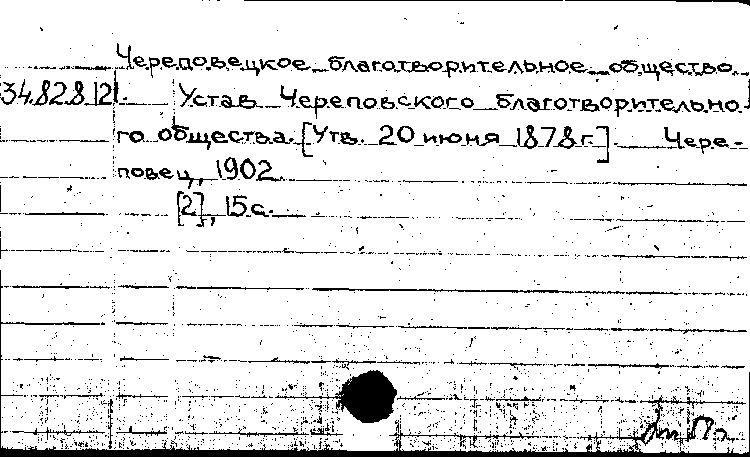 Череповецкое благотворительное общество.
34.82.8.121. Устав Череповского благотворительно
го общества. [Утв. 20 июня 1878 г.]. Чере-
повец, 1902.
[2], 15 с.